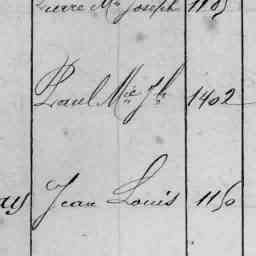 Pierre Mie Joseph 1185
Paul Mie Jh 1402
Jean Louis 1150